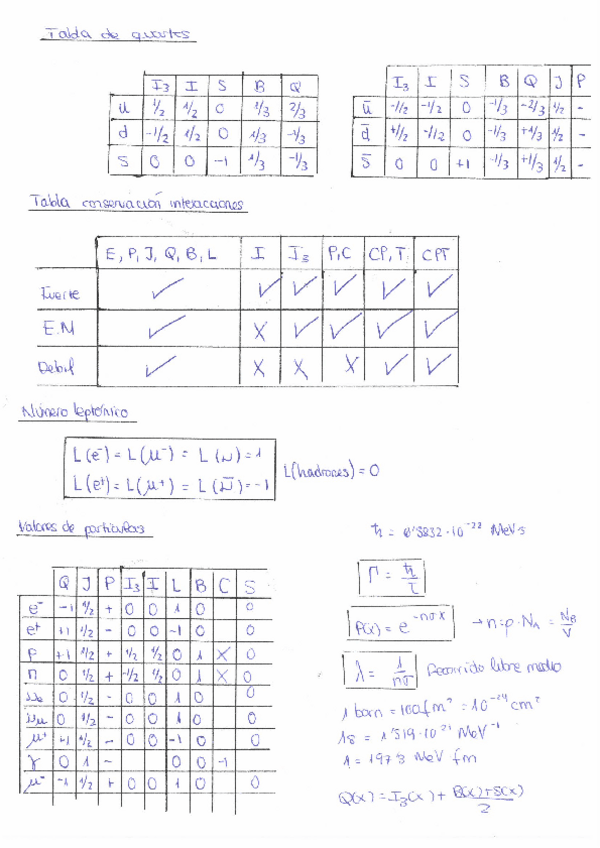 Tabla de quarks
I₃ I S B Q
u 1/2 1/2 0 1/3 2/3
d -1/2 1/2 0 1/3 -1/3
s 0 0 -1 1/3 -1/3
I₃ I S B Q J P
ū -1/2 -1/2 0 -1/3 -2/3 1/2 -
d̄ +1/2 -1/2 0 -1/3 +1/3 1/2 -
s̄ 0 0 +1 -1/3 +1/3 1/2 -
Tabla conservación interacciones
E, P, J, Q, B, L I I₃ P,C CP, T CPT
Fuerte ✓ ✓ ✓ ✓ ✓ ✓
E.M ✓ X ✓ ✓ ✓ ✓
Debil ✓ X X X ✓ ✓
Número leptónico
L(e⁻) = L(μ⁻) = L(ν) = 1
L(e⁺) = L(μ⁺) = L(ν̄) = -1
L(hadrones) = 0
Valores de partículas
Q J P I₃ I L B C S
e⁻ -1 1/2 + 0 0 1 0 0
e⁺ +1 1/2 - 0 0 -1 0 0
p +1 1/2 + 1/2 1/2 0 1 X 0
n 0 1/2 + -1/2 1/2 0 1 X 0
νe 0 1/2 - 0 0 1 0 0
νμ 0 1/2 - 0 0 1 0 0
μ⁺ +1 1/2 - 0 0 -1 0 0
γ 0 1 - 0 0 -1
μ⁻ -1 1/2 + 0 0 1 0 S 0
ħ = MeV s
Γ = ħ/τ
P(x) = e^-nσx → n = ρ·N_A = N_B/V
λ = 1/nσ Recorrido libre medio
1 barn = 100 fm² = 10⁻²⁴ cm²
1s = 1'519·10²¹ MeV⁻¹
1 = 197'3 MeV fm
Q(x) = I₃(x) + B(x)+S(x)/2